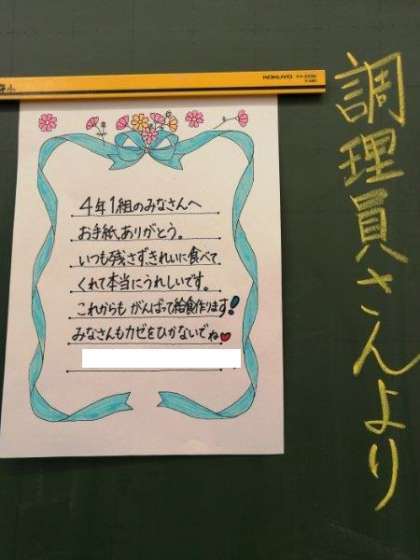 調理員さんより
4年1組のみなさんへ
お手紙ありがとう。
いつも残さずきれいに食べて
くれて本当にうれしいです。
これからもがんばって給食作ります!
みなさんもカゼをひかないでね♥
KOKUYO